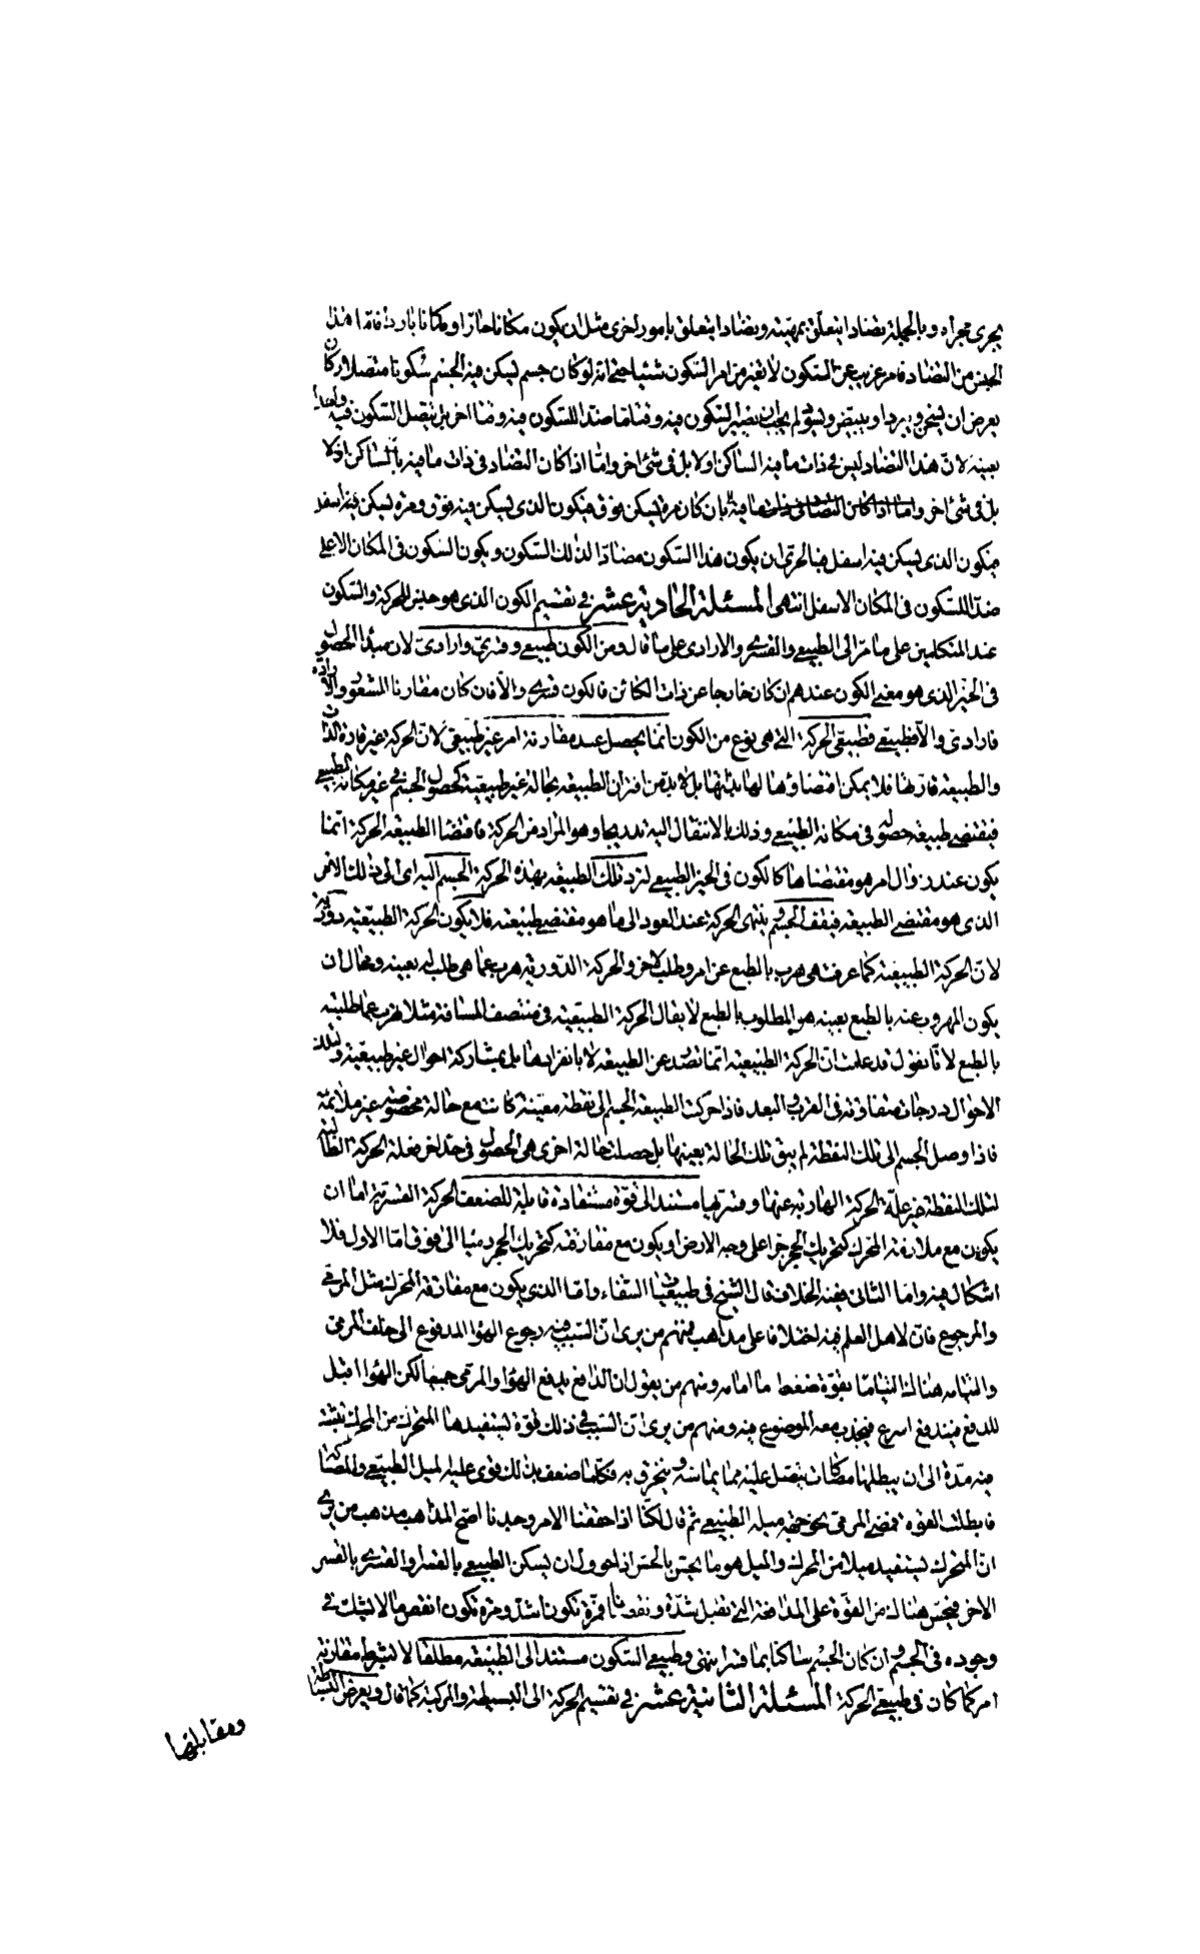 يجرى مجراه وبالجملة تضادا يتعلق بهيئته وتضادا يتعلق بامور اخرى مثل ان يكون مكانا حارا او مكانا باردا فان هذا
الجنس من التضاد فامر غريب عن السكون لا يغير من امر السكون شيئا حتى انه لو كان جسم ليسكن فيه الجسم سكونا متصلا وكان
يعرض ان يسخن ويبرد او يبيض ويسود لم يجب ان يصير السكون فيه وقتا ما ضدا للسكون فيه وقتا اخر بل يتصل السكون فيه واحدا
بعينه لان هذا التضاد ليس فى ذات ما فيه الساكن اولا بل فى شئ اخر واما اذا كان التضاد فى ذات ما فيه بالساكن اولا لا
بل فى شئ اخر واما اذا كان التضاد فى ذات ما فيه بان كان مرة ليسكن فوق فيكون الذى ليسكن فيه فوق ومرة ليسكن فيه اسفل
فيكون الذى ليسكن فيه اسفل فبالحرى ان يكون هذا السكون مضادا لذلك السكون ويكون السكون فى المكان الاعلى
ضدا للسكون فى المكان الاسفل انتهى المسئلة الحادية عشر فى تقسيم الكون الذى هو جنس للحركة والسكون
عند المتكلمين على ما مر الى الطبيعى والقسرى والارادى على ما قال ومن الكون طبيعى وقسرى وارادى لان مبدأ الحصول
فى الحيز الذى هو معنى الكون عندهم ان كان خارجا عن ذات الكائن فالكون قسرى والا فان كان مقارنا للشعور والارادة
فارادى والا فطبيعى فطبيعى الحركة التى هى نوع من الكون انما يحصل عند مقارنة امر غير طبيعى لان الحركة غير قارة الذات
والطبيعة قارتها فلا يمكن اقتضاؤها لها بذاتها بل لابد من اقتران الطبيعة بحالة غير طبيعية كحصول الجسم فى غير مكانه الطبيعى
فيقتضى طبيعته حصوله فى مكانه الطبيعى وذلك بالانتقال اليه تدريجا وهو المراد من الحركة فاقتضا الطبيعة الحركة انما
يكون عند زوال امر هو مقتضاها كالكون فى الحيز الطبيعى لترد تلك الطبيعة بهذه الحركة الجسم اليه اى الى ذلك الامر
الذى هو مقتضى الطبيعة فيقف الجسم وينتهى الحركة عند العود الى ما هو مقتضى طبيعته فلا يكون الحركة الطبيعية دورية
لان الحركة الطبيعية كما عرفت هى هرب بالطبع عن امر وطلب لاخر والحركة الدورية هرب عما هى طلب له بعينه ومحال ان
يكون المهروب عنه بالطبع بعينه هو المطلوب بالطبع لا يقال الحركة الطبيعية فى منتصف المسافة مثلا هرب عما طلبته
بالطبع لانا نقول قد علمت ان الحركة الطبيعية انما تصدر عن الطبيعة لا بانفرادها بل بمشاركة احوال غير طبيعية ولتلك
الاحوال درجات متفاوتة فى القرب والبعد فاذا حركت الطبيعة الجسم الى نقطة معينة كانت مع حالة مخصوصة غير ملائمة
فاذا وصل الجسم الى تلك النقطة لم يبق تلك الحالة بعينها بل حصلت حالة اخرى هى الحصول فى حد اخر فعلة الحركة الطالبة
لتلك النقطة غير علة الحركة الهاربة عنها وقسريها مستند الى قوة مستفادة قابلة للضعف الحركة القسرية اما ان
يكون مع ملازمة المحرك كتحريك الحجر جرا على وجه الارض او يكون مع مفارقته كتحريك الحجر رميا الى فوق اما الاول فلا
اشكال فيه واما الثانى ففيه الخلاف قال الشيخ فى طبيعيات الشفاء واما الذى يكون مع مفارقة المحرك مثل المرمى
والمرجوع فان لاهل العلم فيه اختلافا على مذاهب فمنهم من يرى ان السبب فيه رجوع الهوا المدفوع الى خلف المرمى
والتيامه هناك التياما بقوة ضغط ما امامه ومنهم من يقول ان الدافع يدفع الهوا والمرمى جميعا لكن الهوا اقبل
للدفع فيندفع اسرع فينجذب معه الموضوع فيه ومنهم من يرى ان السبب فى ذلك قوة ليستفيدها المتحرك من المحرك يثبت
فيه مدة الى ان يبطلها مصاكات يتصل عليه مما يماسه وينخرق به فكلما ضعف بذلك قوى عليه الميل الطبيعى والمصاكة
فابطلت القوة فمضى المرمى نحو جهة ميله الطبيعى ثم قال لكنا اذا حققنا الامر وجدنا اصح المذاهب مذهب من يرى
ان المتحرك ليستفيد ميلا من المحرك والميل هو ما يحس بالحس اذا حوول ان يسكن الطبيعى بالقسر او القسرى بالقسر
الاخر فيحس هناك من القوة على المدافعة التى تقبل شدة ونقصانا فمرة تكون اشد ومرة تكون انقص ما لا يشك فى
وجوده فى الجسم وان كان الجسم ساكنا بما قسر انتهى وطبيعى السكون مستند الى الطبيعة مطلقا لا بشرط مقارنة
امر كما كان فى طبيعى الحركة المسئلة الثانية عشر فى تقسيم الحركة الى البسيطة والمركبة كما قال ويعرض البساطة
ومقابلها